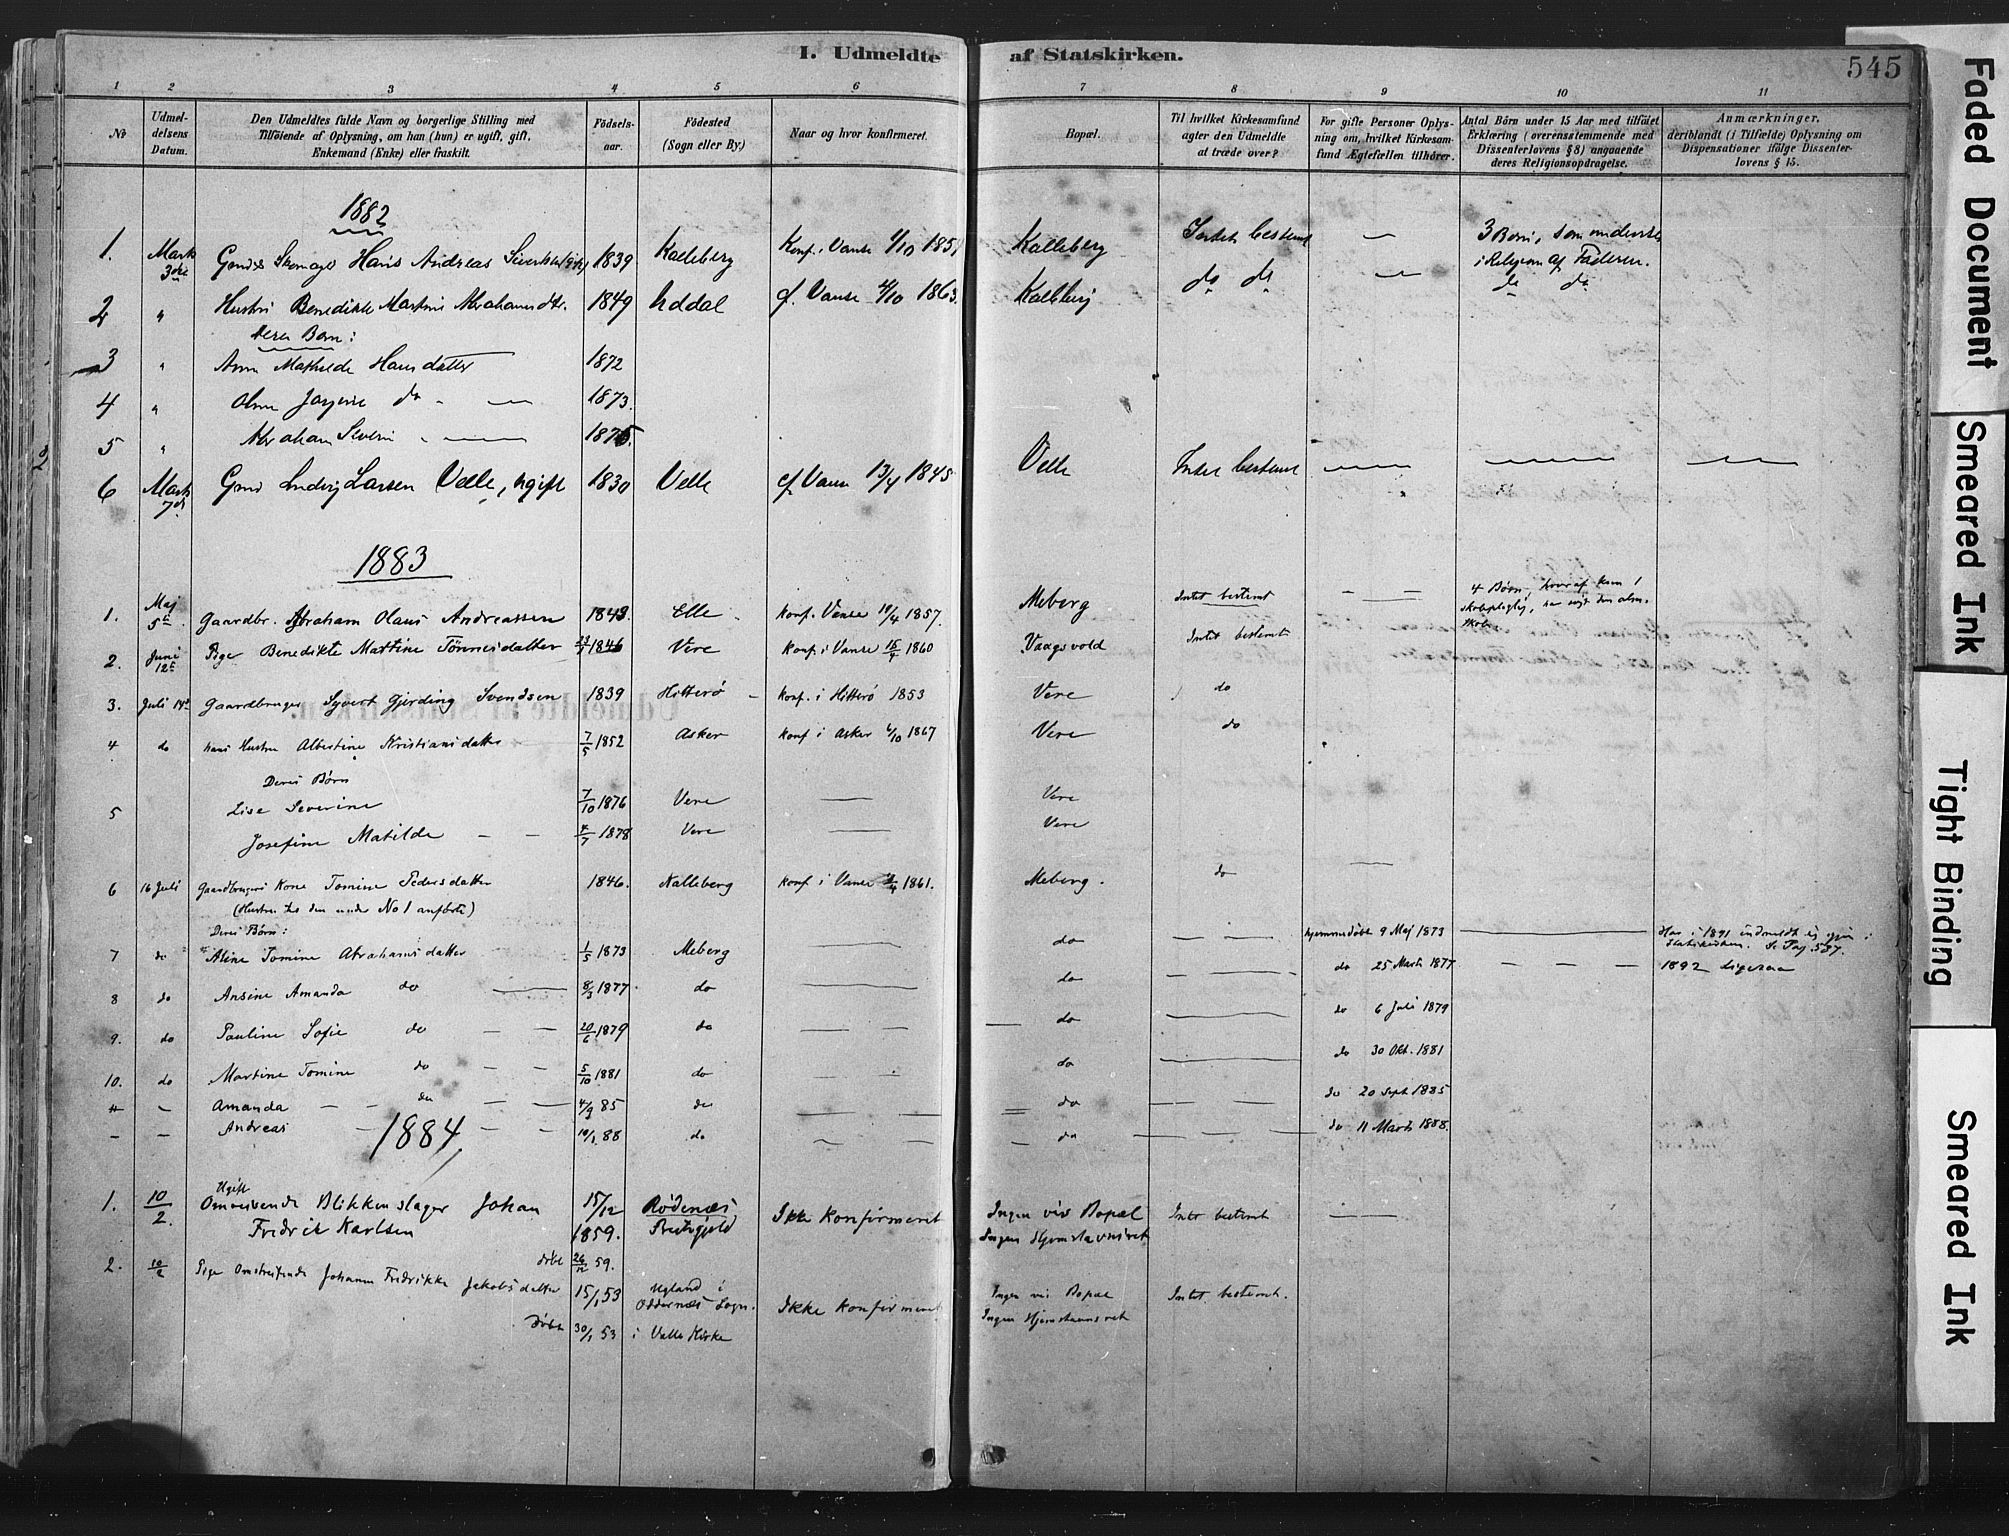 I. Udmeldte af Statskirken.
545
1 2 3 4 5 6 7 8 9 10 11
No
Udmel-
delsens
Datum.
Den Udmeldtes fulde Navn og borgerlige Stilling med
Tilföiende af Oplysning, om han (hun) er ugift, gift,
Enkemand (Enke) eller fraskilt.
Födsels-
aar.
Födested
(Sogn eller By.)
Naar og hvor konfirmeret.
Bopæl.
Til hvilket Kirkesamfund
agter den Udmeldte
at træde over?
For gifte Personer Oplys-
ning om, hvilket Kirkesam-
fund Ægtefællen tilhörer.
Antal Börn under 15 Aar med tilföiet
Erklæring (overensstemmende med
Dissenterlovens § 8) angaaende
deres Religionsopdragelse.
Anmærkninger,
deriblandt (i Tilfælde) Oplysning om
Dispensationer ifölge Dissenter-
lovens § 15.
1882
1. Marts Hans Andreas 1839 Kalleberg Konf. i Vanse 1/10 185 Kalleberg Intet bestemt — 3 Børn, som undervises
i Religion af Faderen.
2 " Hustru Benedikte Martine Abrahamsdtr. 1849 Uddal cf. Vanse 4/10 1863. Kalleberg do do — do do
Deres Børn:
3 " Anne Mathilde Hansdatter 1872
4 " do - — 1873.
5 " Abraham Severin - — 1875.
6 Marts 7de Ludvig Larsen Velle, ugift 1830 Velle cf Vanse 13/4 1845 Velle Intet bestemt — — —
1883
1. Maj 5te Gaardbr. Abraham Olaus Andreassen 1843. Elle konf. Vanse 19/4 1857. Meberg Intet bestemt — — 4 Børn, hvoraf kun 1
skolepligtig,
2. Juni 12te Pige Benedikte Martine Tönnesdatter 1846 Vere konf. i Vanse 15/4 1860 Vaagsvold Intet bestemt
3. Juli Gaardbruger Syvert Gjerding Svendsen 1839 Hitterö - konf. i Hitterö 1853 Vere do
4 do hans Hustru Albertine Kristiansdatter 7/5 1852 Asker konf i Asker 6/10 1867 Vere do
Deres Børn
5 Lise Severine 7/10 1876 Vere — Vere
Josefine Matilde — — 4/7 1878 Vere — Vere
6 16 Juli Gaardbrugers Kone Tomine Pedersdatter 1846. Kalleberg konf i Vanse 1861. Meberg. do —
(Hustru til den under No 1 anförte)
Deres Børn:
7 do Aline Tomine Abrahamsdatter 1/5 1873 Meberg — do — — hjemmedöbt 9 Maj 1873 — Har i 1891 indmeldt sig igjen i
Statskirken. Se Pag. 537.
8 do Ansine Amanda do — 8/3 1877 do — do — do 25 Marts 1877 — — — 1892 ligesaa
9. do Pauline Sofie do — — 20/6 1879 do — — — do — do 6 Juli 1879
10. do Martine Tomine do — — 5/10 1881 do — — do — do 30 Okt. 1881
Amanda — — do — — 4/9 85 do — — do — — do 20 Sept 1885
- - Andreas — — — 10/1 88 do — — — do — — — do 11 Marts 1888.
1884
Ugift
1. 10/2. Omreisende Blikkenslager Johan 15/12 Rödenæs Ikke konfirmeret Ingen vis Bopæl Intet bestemt — —
Fredrik Karlsen 1859. Prestegjeld Ingen Hjemstavnsret
döbt 26/12 59.
2. 10/2 Pige Omstreifende Johanne Fredrikke Jakobsdatter 15/1 53 Ugland i Ingen vis Bopæl Intet bestemt.
Oddernæs Sogn. Ikke konfirmeret Ingen Hjemstavnsret
Döbt 30/1 53 i Valle Kirke
Faded Document
Smeared Ink
Tight Binding
Smeared Ink